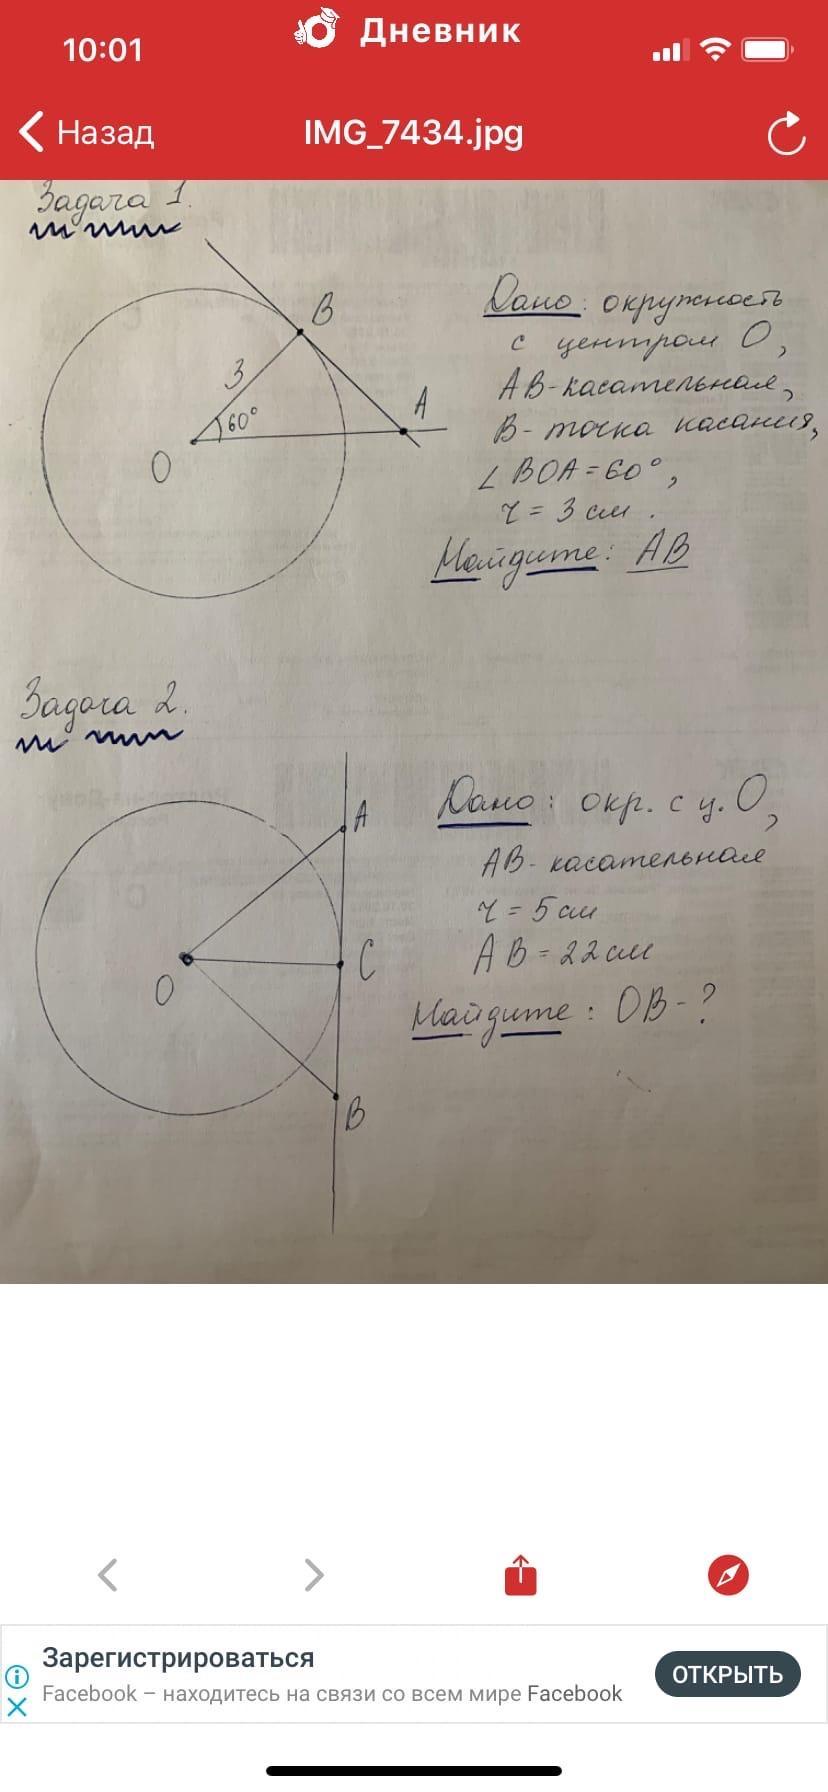 Дневник
10:01
Назад
IMG_7434.jpg
Задача 1.
B
3
60°
A
O
Дано: окружность
с центром O,
AB-касательная,
B- точка касания,
∠ BOA = 60°,
r = 3 см.
Найдите: AB
Задача 2.
A
O
C
B
Дано: окр. с ц. O,
AB- касательная
r = 5 см
AB = 22 см
Найдите: OB - ?
Зарегистрироваться
Facebook – находитесь на связи со всем мире Facebook
ОТКРЫТЬ